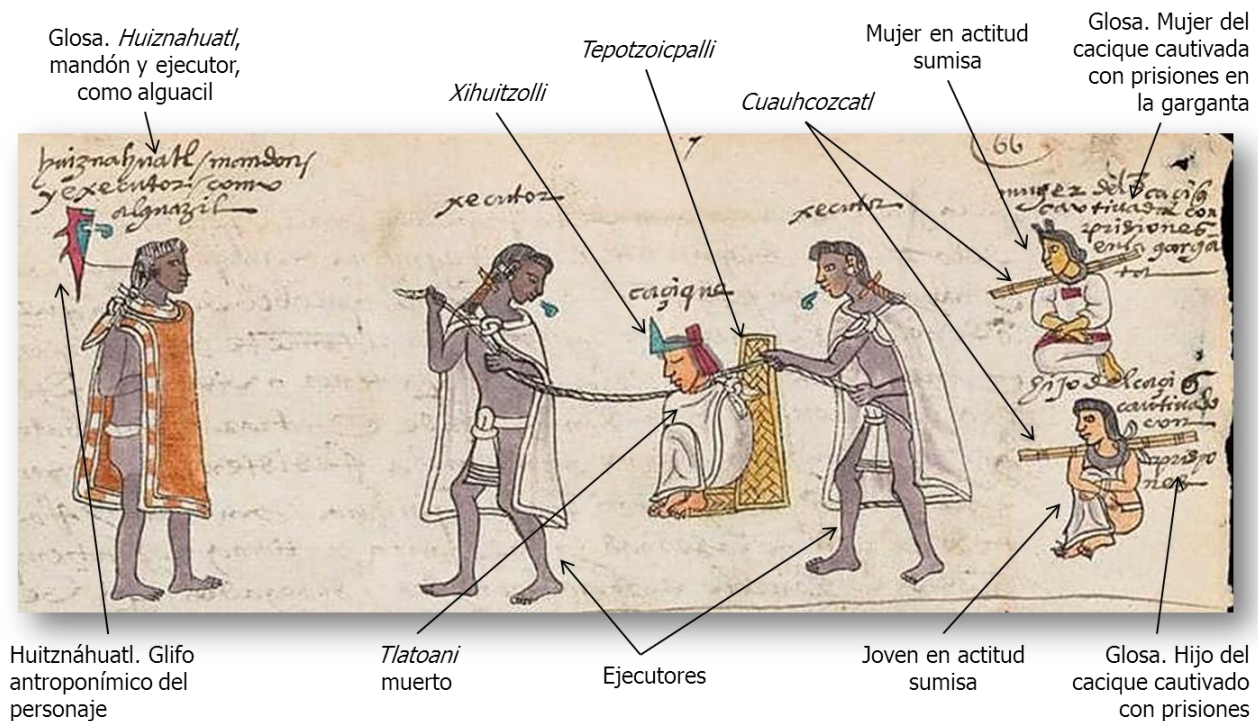 Glosa. Huiznahuatl,
mandón y ejecutor,
como alguacil
Xihuitzolli
Tepotzoicpalli
Cuauhcozcatl
Mujer en actitud
sumisa
Glosa. Mujer del
cacique cautivada
con prisiones en
la garganta
huiznahuatl / mandon
y executor como
alguazil
xecutor
caçique
xecutor
66
muger del caçiq
cautivada con
prisiones
en la garga
ta
hijo del caçiq
cautivado
con
prisio
nes
Huitznáhuatl. Glifo
antroponímico del
personaje
Tlatoani
muerto
Ejecutores
Joven en actitud
sumisa
Glosa. Hijo del
cacique cautivado
con prisiones